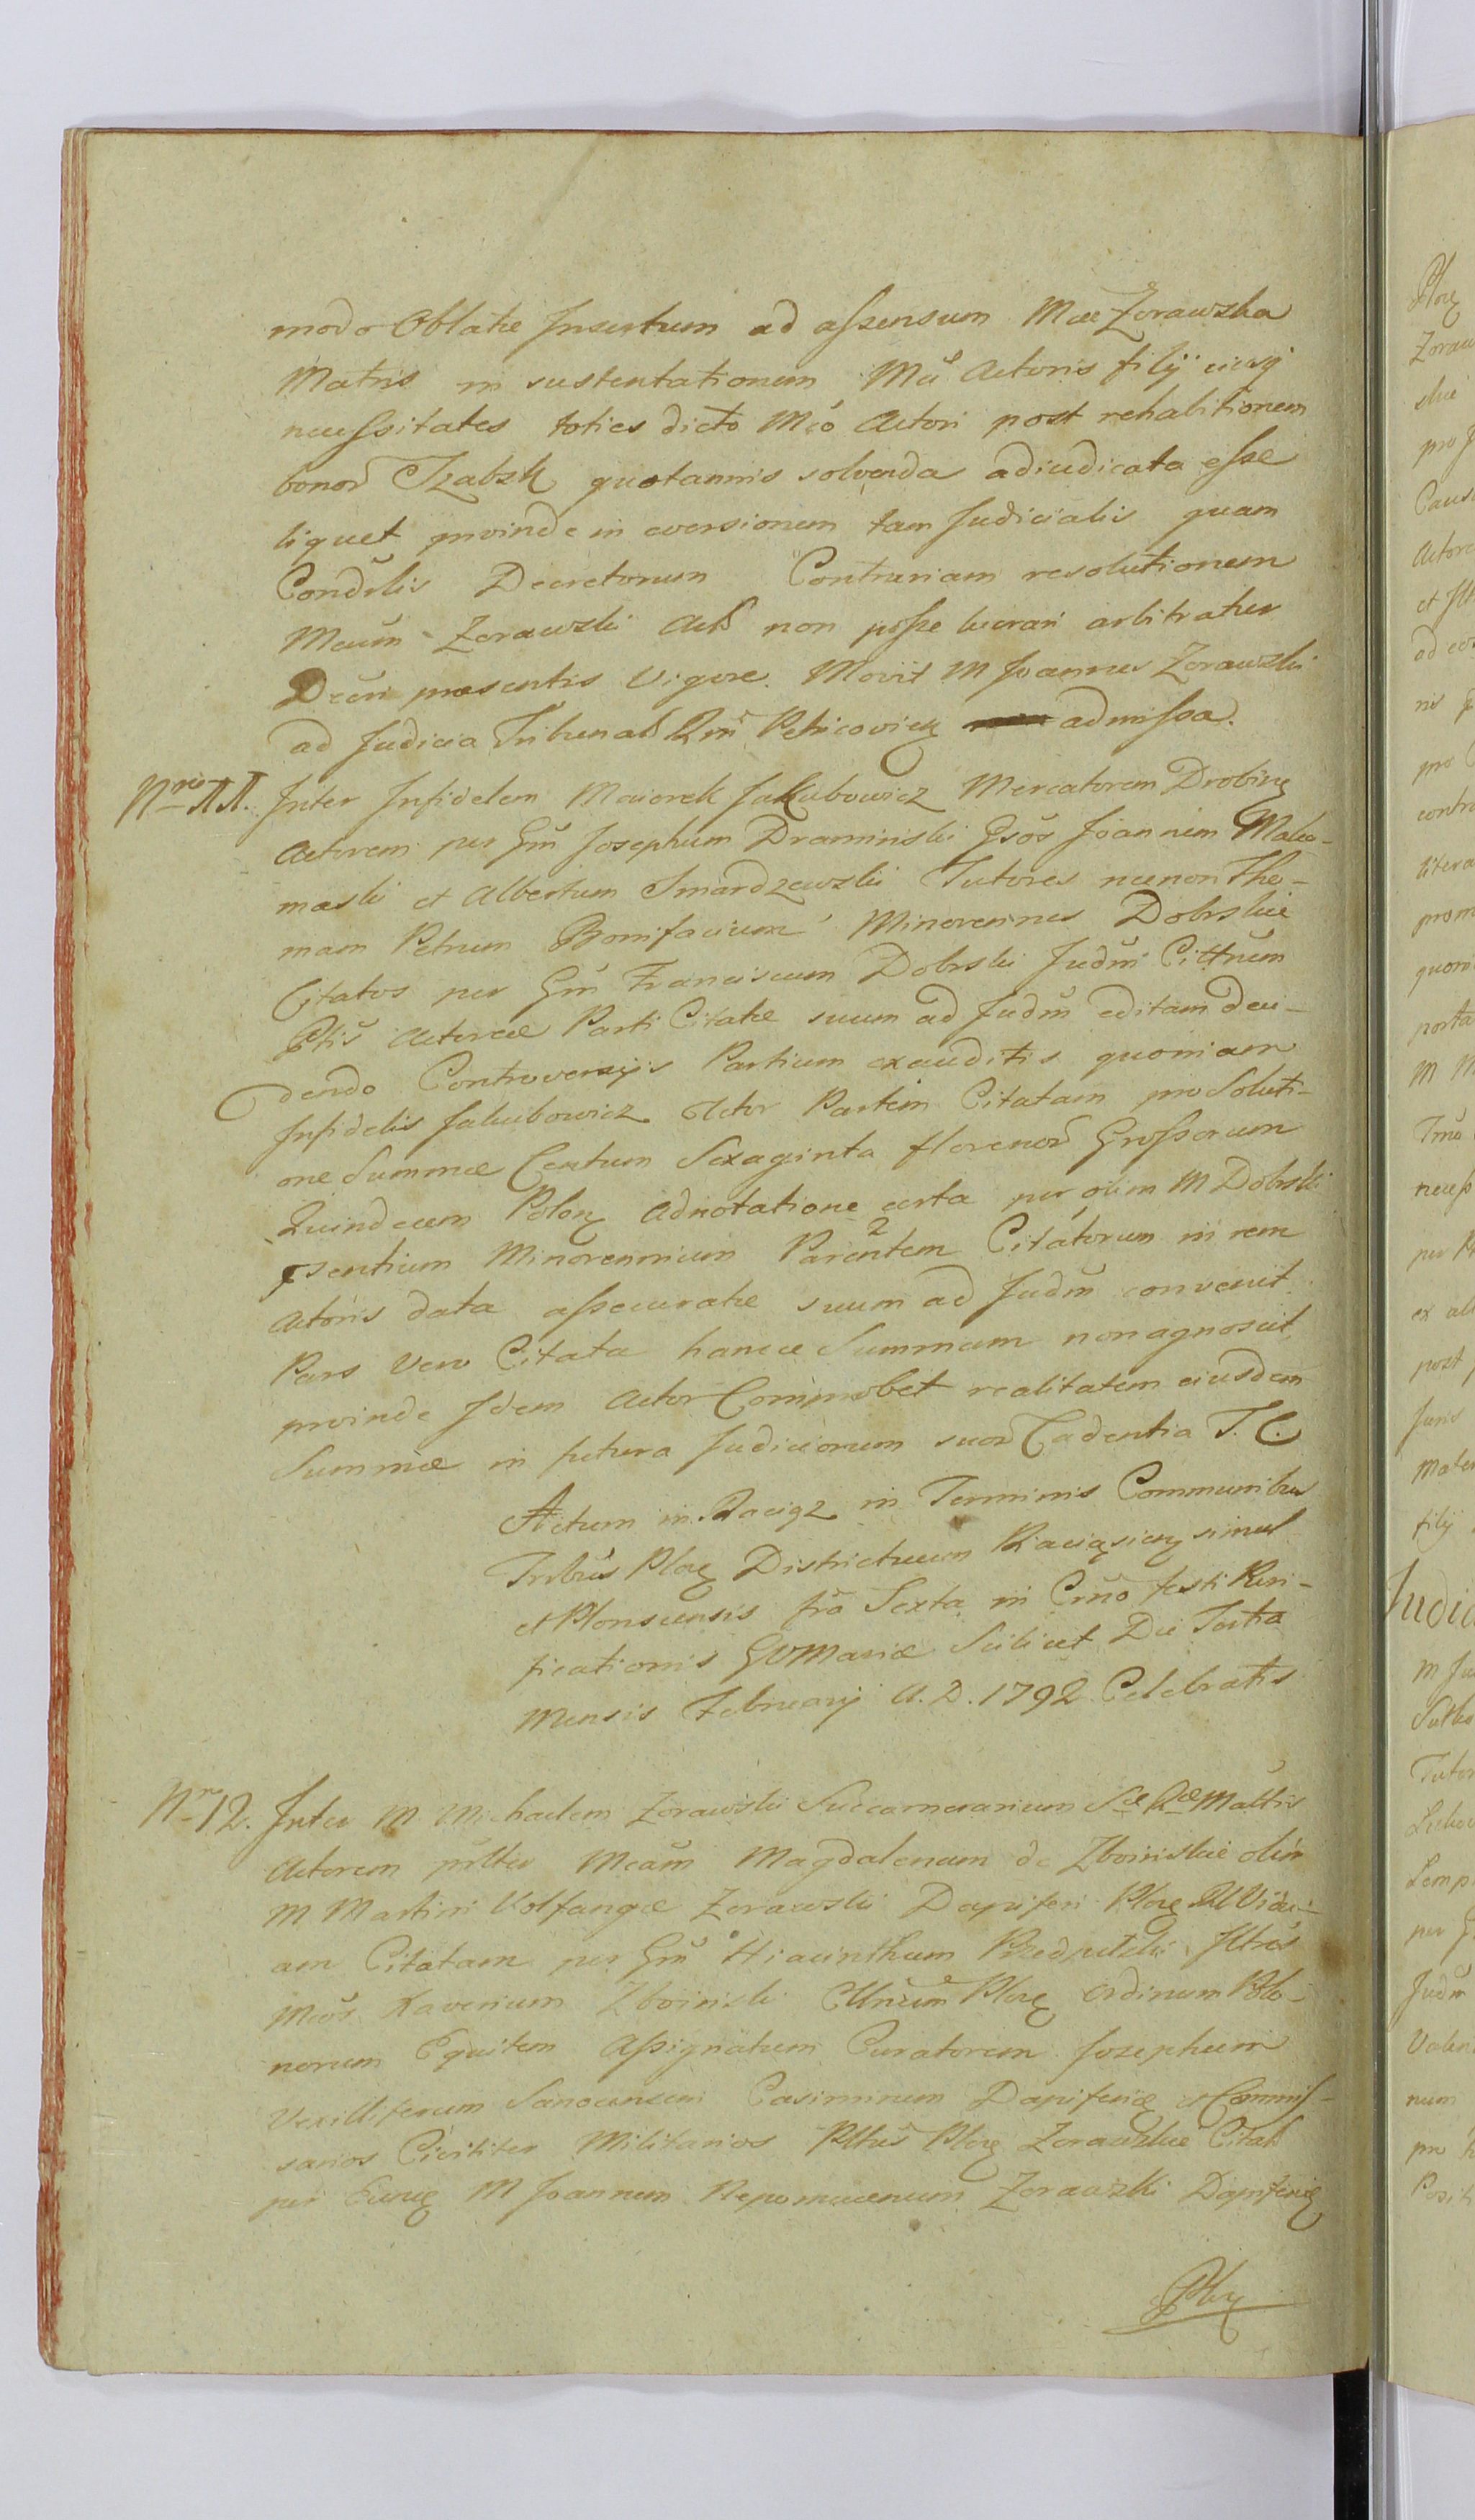 modo Oblatæ Insertum ad assensum Mcæ Zorawska
Matris in sustentationem Mci Actoris filij eiusq
necessitates toties dicto Mco Actori post rehabitionem
bonor Szabsk quotannis solvenda adiudicata esse
liquet proinde in eversionem tam Judicialis quam
Condēlis Decretorum Contrariam resolutionem
Mcum Zorawski Act non posse lucrari arbitratur
Decri præsentis vigore. Movit M Joannes Zorawski
ad Judicia Tribunal Rni Petricovien admissa.
Nro 11. Inter Infidelem Maiorek Jakubowicz Mercatorem Drobinę
Actorem per Gm Josephum Draminski Gsos Joannem Mala-
maski et Albertum Smardzewski Tutores necnon Tho-
mam Petrum Bonifacium Minorennes Dobrskie
Citatos per Gm Franciscum Dobrski Judm Cittnem
Ptis Actoreæ Parti Citatæ suum ad Judm editam deci-
dendo Controversijs Partium exauditis quoniam
Infidelis Jakubowicz Actor Partem Citatam pro Soluti-
one Summæ Centum Sexaginta florenor Grossorum
Quindecem Polon Adnotatione certa per olim M Dobrski
Minorennium Parentem Citatorum in rem
Actoris data assecuratæ suum ad Judm convenit
Pars vero Citata hancce Summam non agnoscit
proinde Idem Actor Comprobet realitatem eiusdem
Summæ in futura Judiciorum suor Cadentia T. C.
Actum in Raciąz in Terminis Communibus
Trrbus Ploc Districtuum Raciąsien simul
et Plonscensis fra Sexta in Crno festi Puri-
ficationis GVMariæ Scilicet Die Tertia
Mensis Februarij A. D. 1792 Celebratis
Nro 12. Inter M Michaelem Zorawski Succamerarium Sæ Ræ Mattis
Actorem prltter Mcam Magdalenam de Zboinskie olim
M Martini Volfangæ Zorawski Dapiferi Ploc Vidu-
am Citatam per Gm Hiacinthum Przedpełski Iltres
Mcos Xaverium Zboinski Cttnum Ploc Ordinum Polo-
norum Equitem Assignatum Curatorem Josephum
Vexilliferum Sanocensem Casimirum Dapiferię et Commis-
sarios Civiliter Militarios Pltus Ploc Zorawskie Citat
per Eunę M Joannem Nepomucenum Zorawski Dapiferię
Ploc